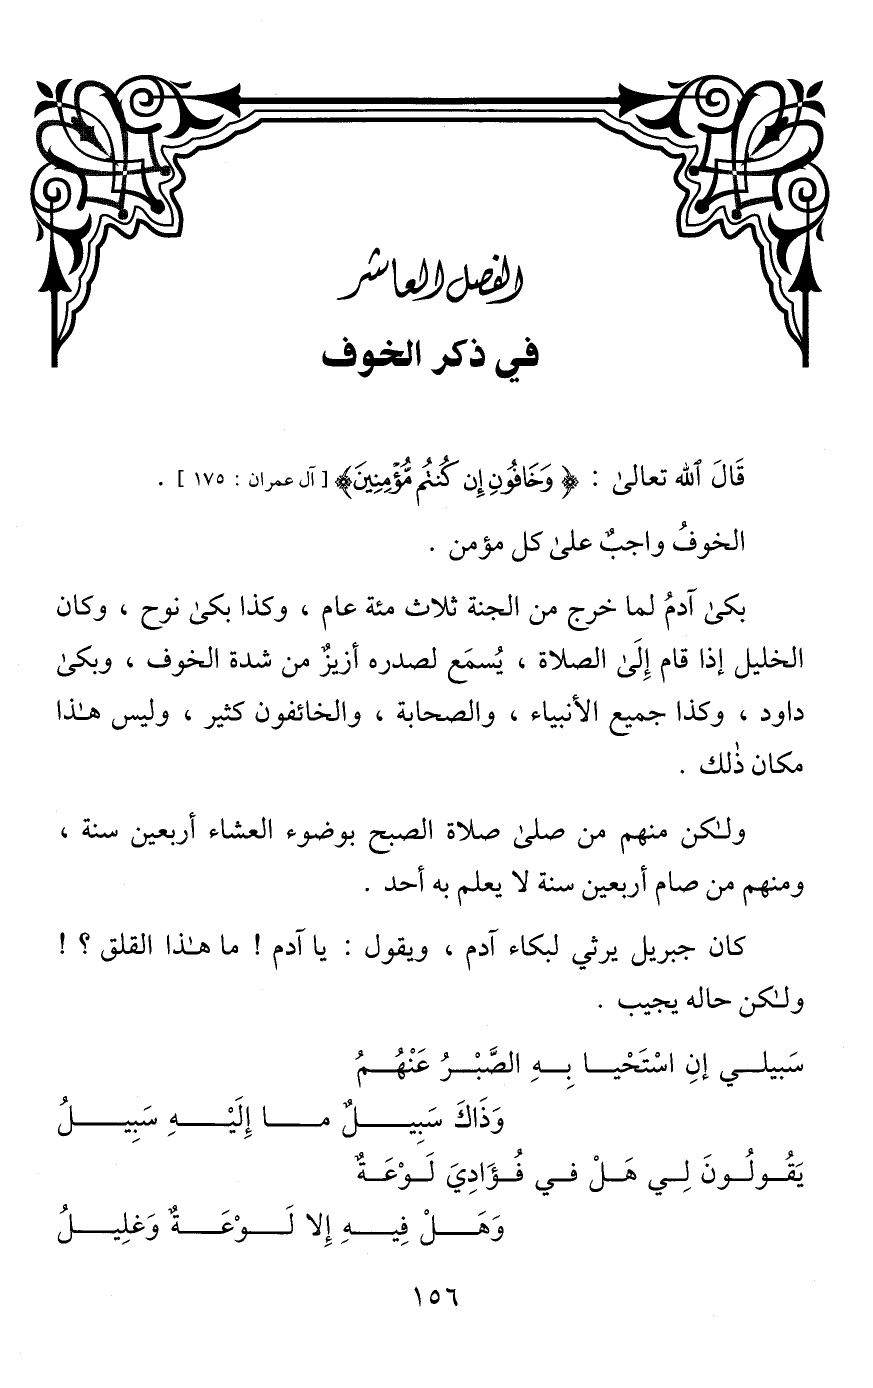 الفصل العاشر
في ذكر الخوف
قَالَ ٱلله تعالىٰ : ﴿ وَخَافُونِ إِن كُنتُم مُّؤْمِنِينَ ﴾ [ آل عمران : ١٧٥ ] .
الخوفُ واجبٌ علىٰ كل مؤمن .
بكىٰ آدمُ لما خرج من الجنة ثلاث مئة عام ، وكذا بكىٰ نوح ، وكان
الخليل إذا قام إِلَىٰ الصلاة ، يُسمَع لصدره أزيزٌ من شدة الخوف ، وبكىٰ
داود ، وكذا جميع الأنبياء ، والصحابة ، والخائفون كثير ، وليس هـٰذا
مكان ذٰلك .
ولـٰكن منهم من صلىٰ صلاة الصبح بوضوء العشاء أربعين سنة ،
ومنهم من صام أربعين سنة لا يعلم به أحد .
كان جبريل يرثي لبكاء آدم ، ويقول : يا آدم ! ما هـٰذا القلق ؟ !
ولـٰكن حاله يجيب .
سَبيلـــي إنِ اسْتَحْيـــا بِـــهِ الصَّبْـــرُ عَنْهُـــمُ
وَذَاكَ سَبِيـــلٌ مـــا إِلَيْـــهِ سَبِيـــلُ
يَقُـــولُـــونَ لِـــي هَـــلْ فـــي فُـــؤَادِيَ لَـــوْعَـــةٌ
وَهَـــلْ فِيـــهِ إِلا لَـــوْعَـــةٌ وَغَلِيـــلُ
١٥٦